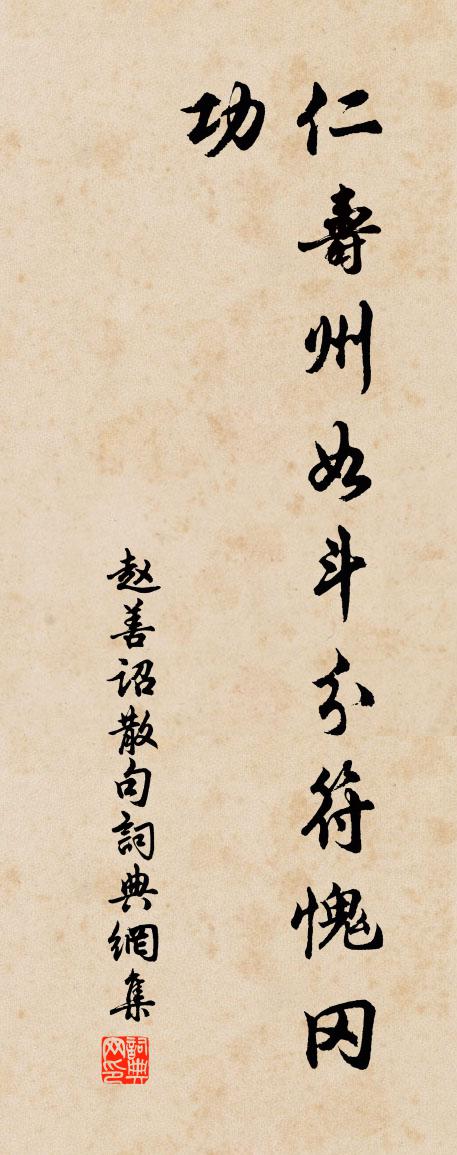 仁壽州如斗分符愧冈
功
赵善诏散句詞典網集
詞典网印